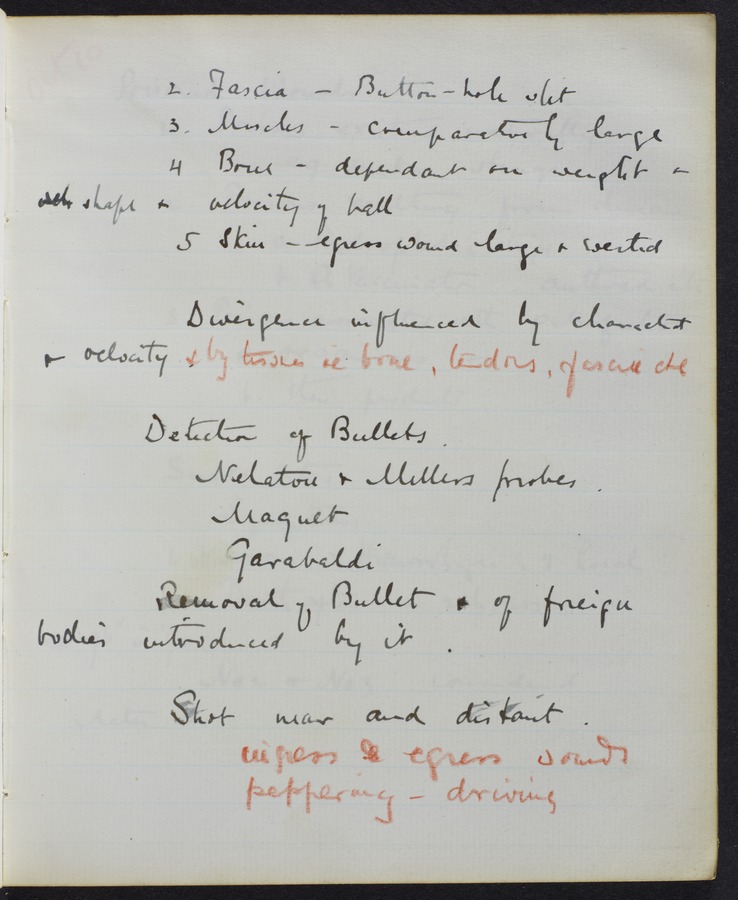 2. Fascia – Button-hole slit
3. Muscles – comparatively large
4 Bone – dependant on weight &
shape & velocity of ball
5 Skin – egress wound large & everted
Divergence influenced by character
& velocity & by tissues ie bone, tendons, fasciae etc
Detection of Bullets.
Nelaton & Millers probes.
Magnet
Garabaldi
Removal of Bullet & of foreign
bodies introduced by it.
Shot near and distant.
ingress & egress wounds
peppering – driving